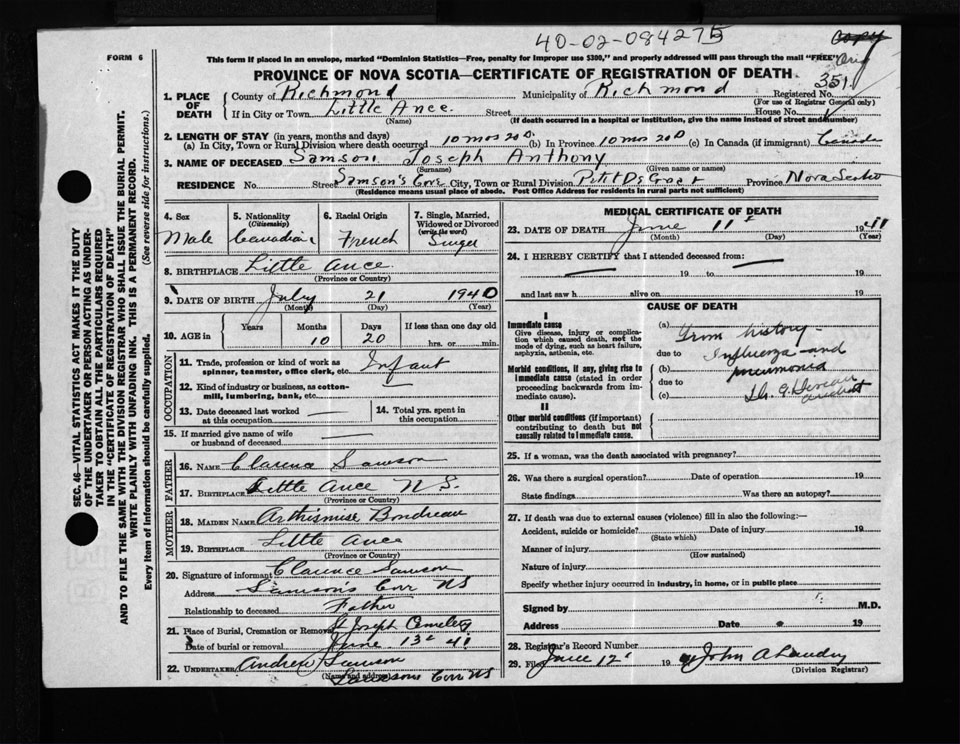 40-02-084275
Copy
Orig
FORM 6
This form if placed in an envelope, marked "Dominion Statistics—Free, penalty for improper use $300," and properly addressed will pass through the mail "FREE"
PROVINCE OF NOVA SCOTIA—CERTIFICATE OF REGISTRATION OF DEATH
351
1. PLACE OF DEATH County of Richmond Municipality of Richmond Registered No.
(For use of Registrar General only)
If in City or Town Little Ance. Street House No.
(Name) (If death occurred in a hospital or institution, give the name instead of street and number)
2. LENGTH OF STAY (in years, months and days)
(a) In City, Town or Rural Division where death occurred 10 mos 20 D. (b) In Province 10 mos 20 D (c) In Canada (if immigrant) Canada
3. NAME OF DECEASED Samson Joseph Anthony
(Surname) (Given name or names)
RESIDENCE No. Street Samson's Cove City, Town or Rural Division Petit De Graat Province Nova Scotia
(Residence means usual place of abode. Post Office Address for residents in rural parts not sufficient)
4. Sex Male
5. Nationality (Citizenship) Canadian
6. Racial Origin French
7. Single, Married, Widowed or Divorced (write the word) Singel
8. BIRTHPLACE Little Ance
(Province or Country)
9. DATE OF BIRTH July 21 1940
(Month) (Day) (Year)
10. AGE in Years Months Days If less than one day old
10 20 hrs. or min.
OCCUPATION
11. Trade, profession or kind of work as spinner, teamster, office clerk, etc. Infant
12. Kind of industry or business, as cotton-mill, lumbering, bank, etc. —
13. Date deceased last worked at this occupation —
14. Total yrs. spent in this occupation
15. If married give name of wife or husband of deceased —
FATHER
16. NAME Clarence Samson
17. BIRTHPLACE Little Ance N S.
(Province or Country)
MOTHER
18. MAIDEN NAME Arthismise Boudreau
19. BIRTHPLACE Little Ance
(Province or Country)
20. Signature of informant Clarence Samson
Address Samson's Cove NS
Relationship to deceased Father
21. Place of Burial, Cremation or Removal St Joseph Cemetety
Date of burial or removal June 13th 41
22. UNDERTAKER Andrew Samson
(Name and address)
Samsons Cove NS
MEDICAL CERTIFICATE OF DEATH
23. DATE OF DEATH June 11th 1941
(Month) (Day) (Year)
24. I HEREBY CERTIFY that I attended deceased from:
— 19 to — 19
and last saw h alive on 19
CAUSE OF DEATH
I
Immediate cause
Give disease, injury or complication which caused death, not the mode of dying, such as heart failure, asphyxia, asthenia, etc.
Morbid conditions, if any, giving rise to immediate cause (stated in order proceeding backwards from immediate cause).
II
Other morbid conditions (if important) contributing to death but not causally related to immediate cause.
(a) From history -
due to Influenza and
(b) pneumonia
due to
(c)
25. If a woman, was the death associated with pregnancy?
26. Was there a surgical operation? Date of operation 19
State findings Was there an autopsy?
27. If death was due to external causes (violence) fill in also the following:—
Accident, suicide or homicide? Date of injury 19
(State which)
Manner of injury
(How sustained)
Nature of injury
Specify whether injury occurred in industry, in home, or in public place
Signed by M.D.
Address Date 19
28. Registrar's Record Number
29. Filed June 12 19 John A Landry
(Division Registrar)
SEC. 46—VITAL STATISTICS ACT MAKES IT THE DUTY
OF THE UNDERTAKER OR PERSON ACTING AS UNDER-
TAKER TO OBTAIN ALL THE PARTICULARS REQUIRED
IN THE "CERTIFICATE OF REGISTRATION OF DEATH"
AND TO FILE THE SAME WITH THE DIVISION REGISTRAR WHO SHALL ISSUE THE BURIAL PERMIT.
WRITE PLAINLY WITH UNFADING INK. THIS IS A PERMANENT RECORD.
Every item of information should be carefully supplied. (See reverse side for instructions.)